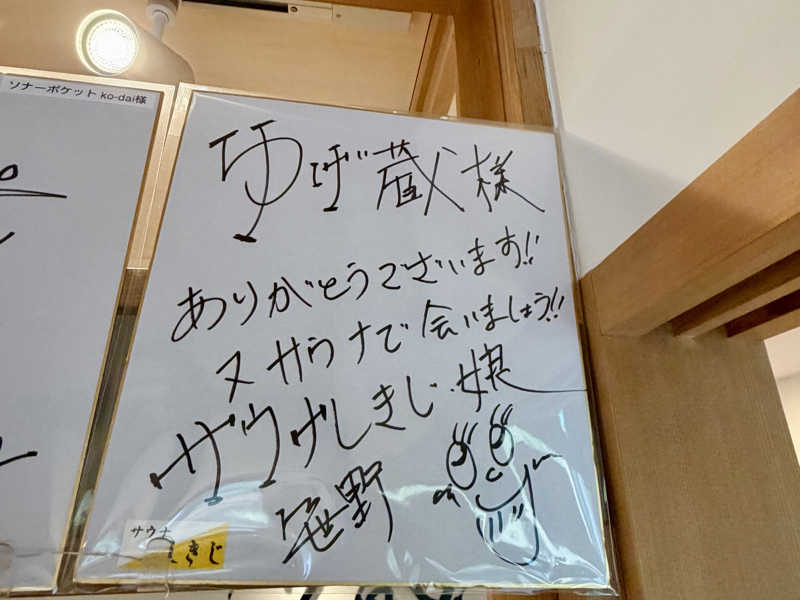 ソナーポケット ko-dai様
ゆげ蔵様
ありがとうございます!!
又サウナで会いましょう!!
サウナしきじ 娘
笹野
サウナ
しきじ